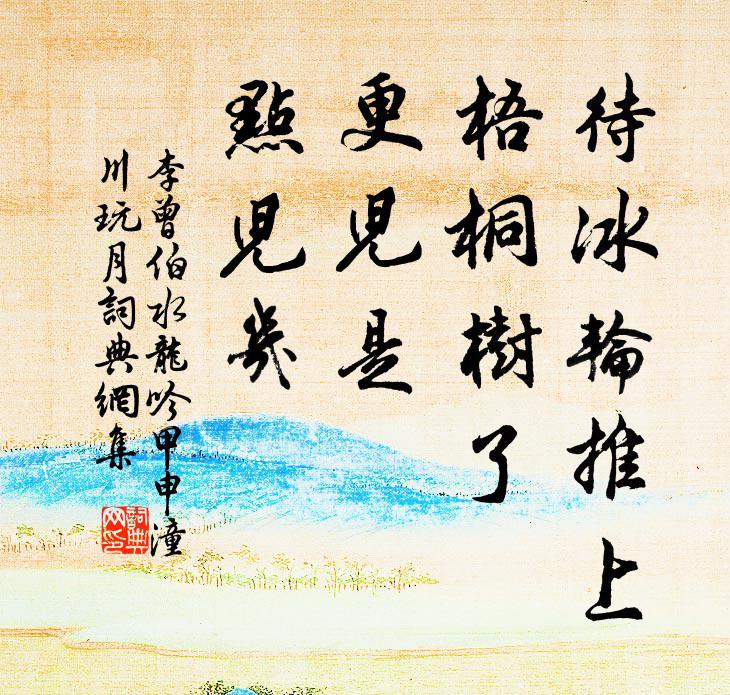 待冰輪推上
梧桐樹了
更兒是
點兒幾
李曾伯水龍吟甲申潼
川玩月詞典網集
詞典
网印